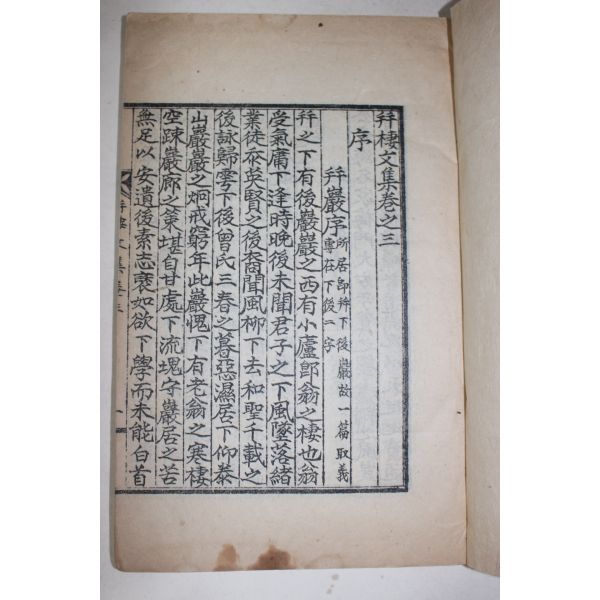 弁棲文集卷之三
序
弁巖序 所居卽弁下後巖故一篇取義
專在下後二字
弁之下有後巖巖之西有小廬卽翁之棲也翁
受氣庸下逢時晚後未聞君子之下風墜落緖
業徒忝英賢之後裔聞風柳下去和聖千載之
後詠歸雩下後曾氏三春之暮惡濕居下仰泰
山巖巖之炯戒窮年此巖愧下有老翁之寒棲
空疎巖廊之策堪自甘處下流塊守巖居之苦
無足以安遺後素志衰如欲下學而未能白首